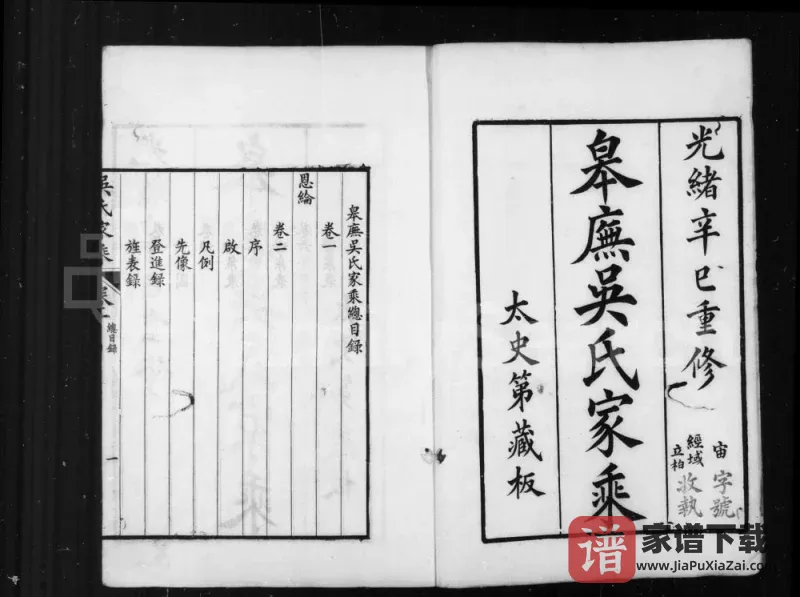 光緒辛巳重修
宙字號
經域
立柏
收執
皐廡吳氏家乘
太史第藏板
皐廡吳氏家乘總目録
卷一
恩綸
卷二
序
啟
凡例
先像
登進録
旌表録
吳氏家乘
總目録
一
谱
家谱下载
www.JiaPuXiaZai.com